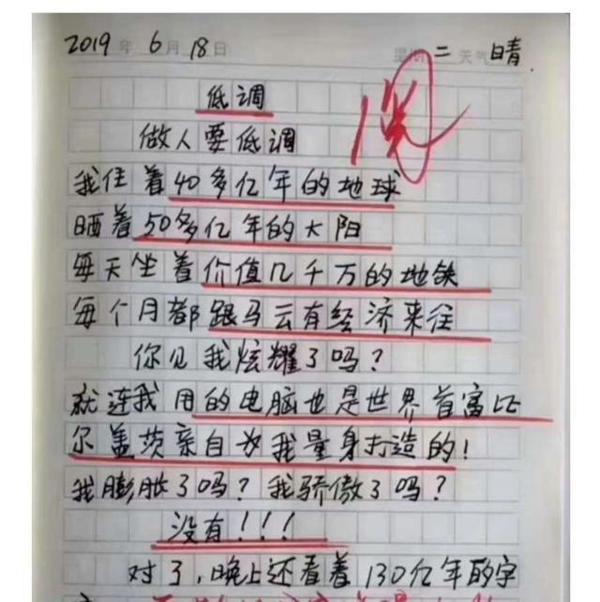 2019年6月18日 星期二 天气晴
低调
阅
做人要低调
我住着40多亿年的地球
晒着50多亿年的太阳
每天坐着价值几千万的地铁
每个月都跟马云有经济来往
你见我炫耀了吗？
就连我用的电脑也是世界首富比
尔盖茨亲自为我量身打造的！
我膨胀了吗？我骄傲了吗？
没有！！！
对了，晚上还看着130亿年的宇